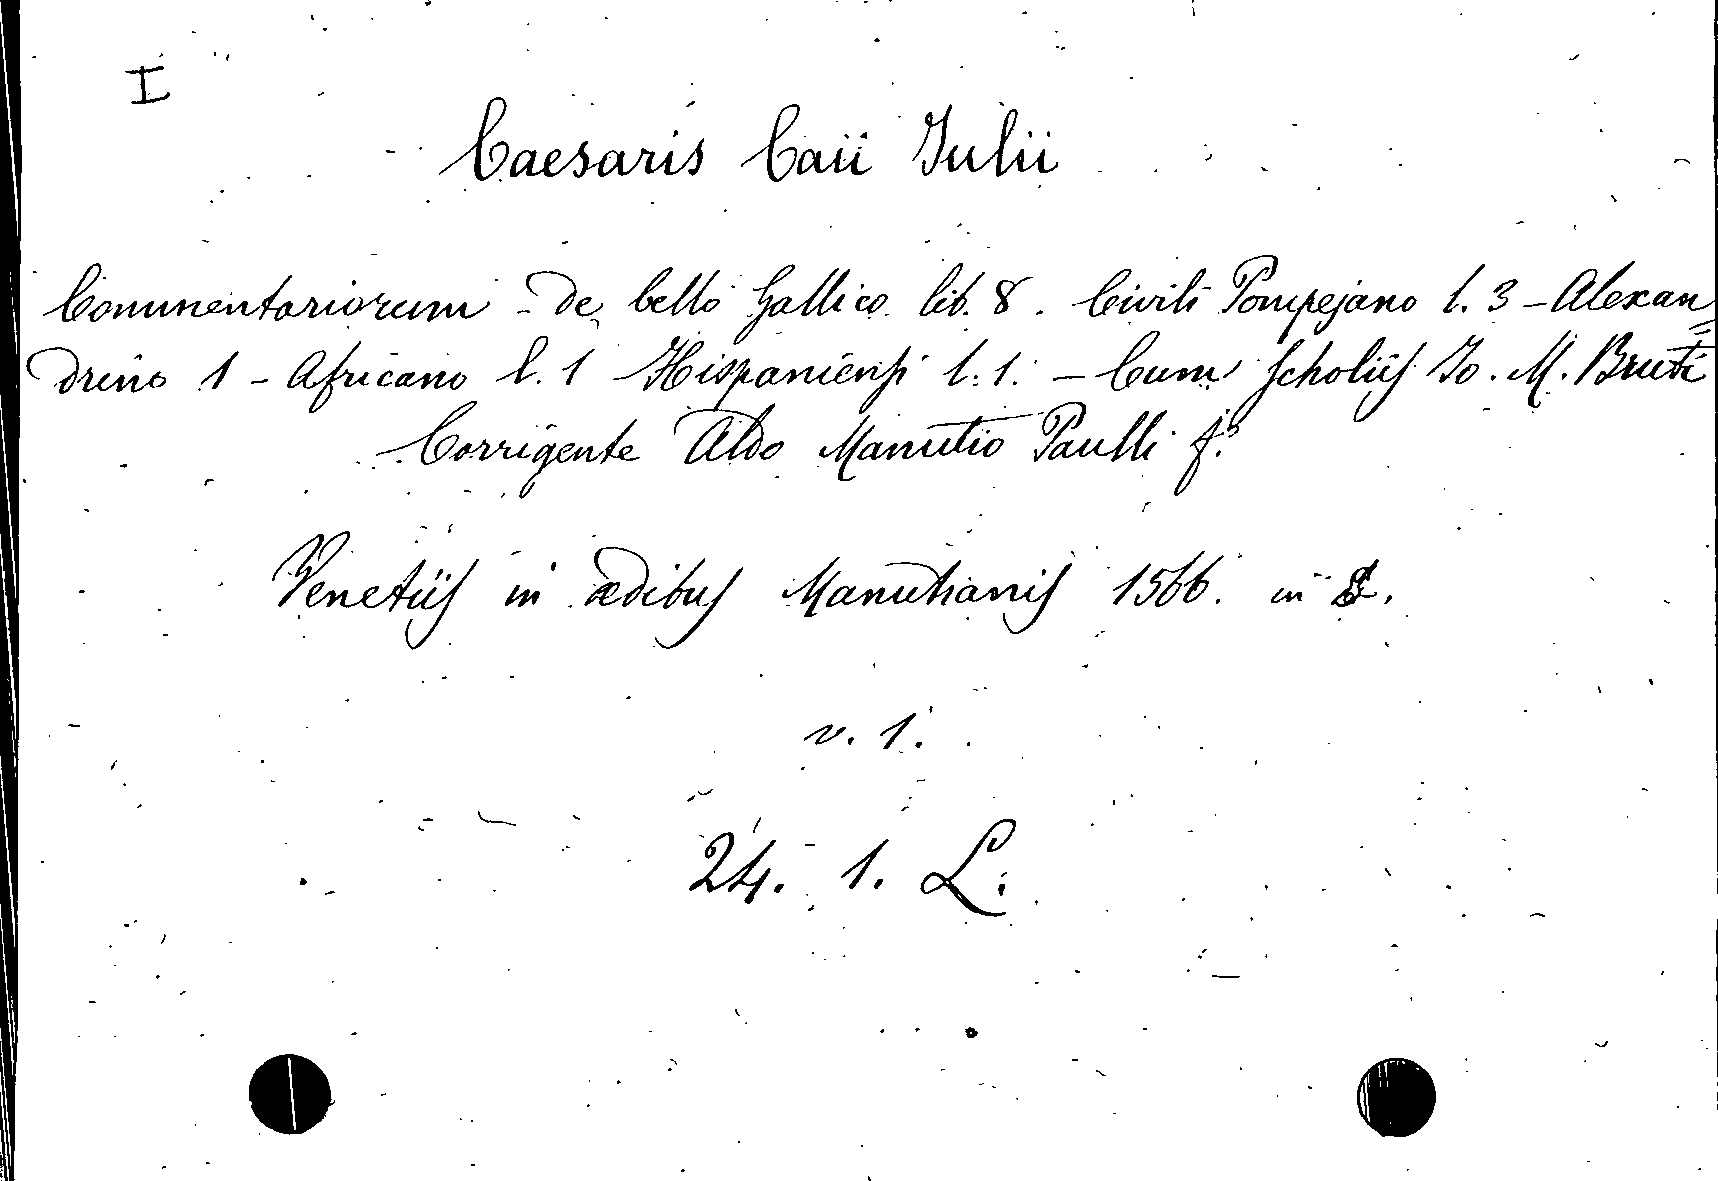 I
Caesaris Caii Julii
Commentariorum - de bello Gallico lib. 8. Civili Pompejano l. 3 - Alexan=
drino 1 - Africano l. 1 Hispaniensi l. 1. - Cum Scholiis Io. M. Bruti
Corrigente Aldo Manutio Paulli f.
Venetiis in ædibus Manutianis 1566. in 8.
v. 1.
24. 1. L.